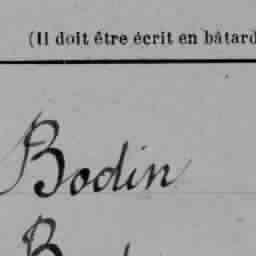 (Il doit être écrit en bâtard
Bodin